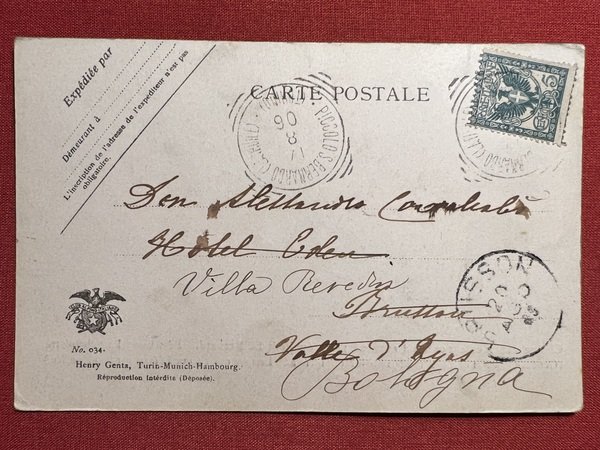 CARTE POSTALE
Expédiée par
Démeurant à
L'inscription de l'adresse de l'expéditeur n'est pas
obligatoire.
PICCOLO S. BERNARDO
8
Don Alessandro
Hotel Eden
Villa
Brusson
Valle d'Ayas
Bologna
BRUSSON
20
No. 034.
Henry Genta, Turin-Munich-Hambourg.
Réproduction Intérdite (Déposée).